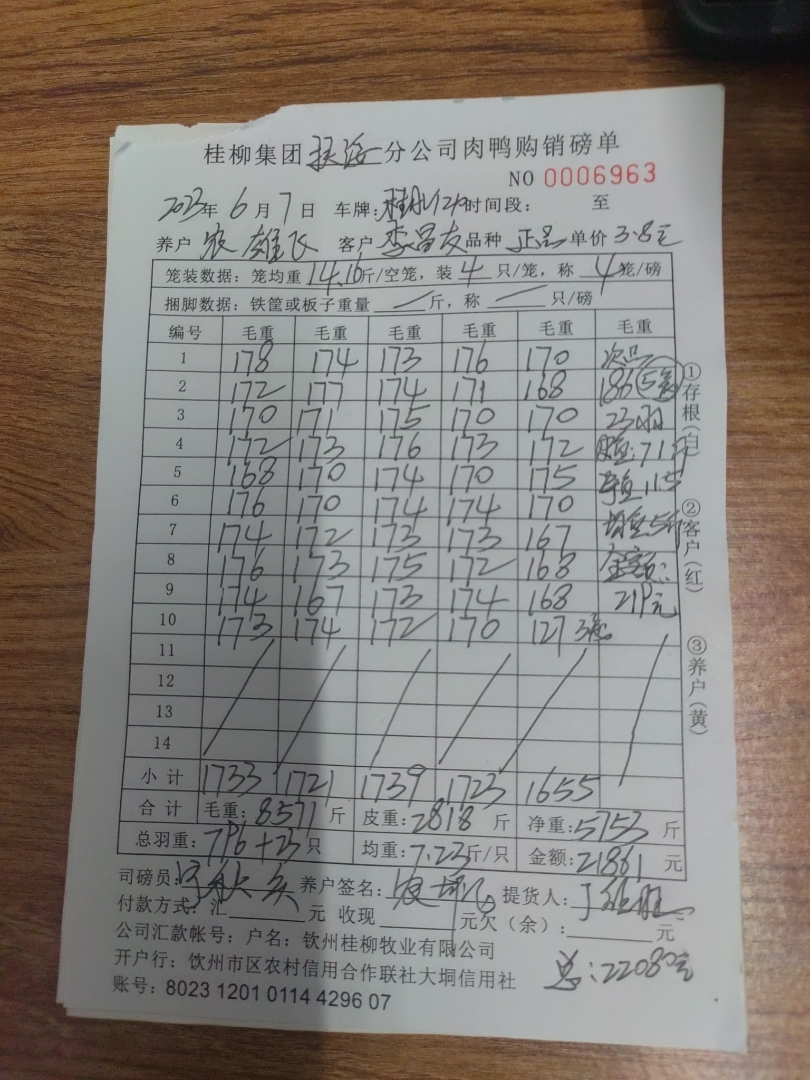 桂柳集团 分公司肉鸭购销磅单
NO 0006963
2023年 6月 7日 车牌: 时间段: 至
养户 农雄飞 客户 李昌友 品种 正品 单价 3.8元
笼装数据: 笼均重 14.16斤/空笼, 装 4 只/笼, 称 4 笼/磅
捆脚数据: 铁筐或板子重量 斤, 称 只/磅
编号 毛重 毛重 毛重 毛重 毛重 毛重
1 178 174 173 176 170 次品
2 172 177 174 171 168 186
3 170 171 175 170 170 23羽
4 172 173 176 173 172 皮重:71斤
5 168 170 174 170 175 115
6 176 170 174 174 170 均重5斤
7 174 172 173 173 167
8 176 173 175 172 168 金额:
9 174 167 173 174 168 219元
10 173 174 172 170 127
11
12
13
14
小计 1733 1721 1739 1723 1655
合计 毛重: 8571 斤 皮重: 2818 斤 净重: 5753 斤
总羽重: 796+23 只 均重: 7.23 斤/只 金额: 21861 元
司磅员: 养户签名: 提货人:
付款方式: 汇 元 收现 元欠(余): 元
公司汇款帐号: 户名: 钦州桂柳牧业有限公司
开户行: 钦州市区农村信用合作联社大垌信用社
总: 22080元
账号: 8023 1201 0114 4296 07
①存根(白)
②客户(红)
③养户(黄)